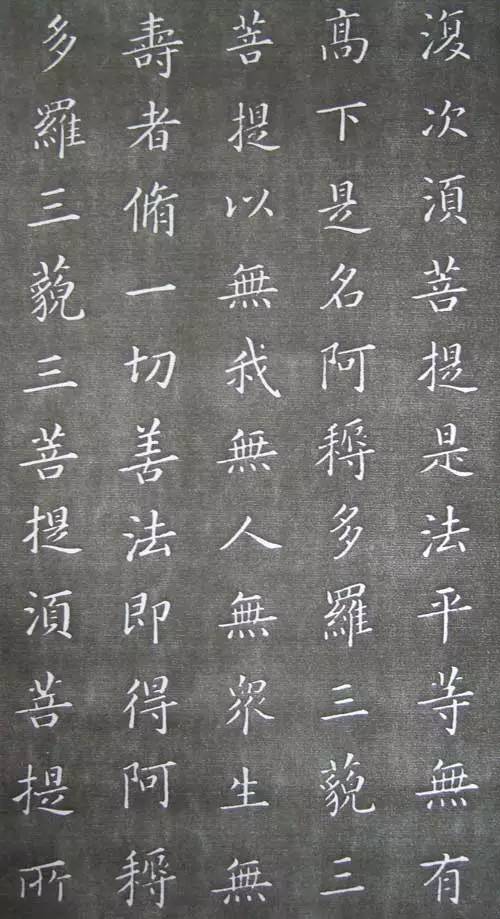 復次湏菩提是法平等無有
髙下是名阿耨多羅三藐三
菩提以無我無人無眾生無
壽者脩一切善法即得阿耨
多羅三藐三菩提湏菩提所